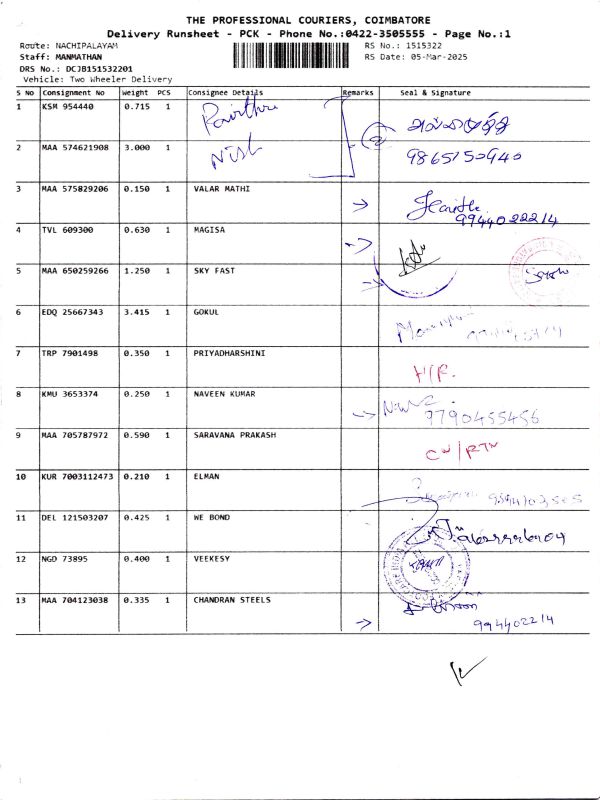 THE PROFESSIONAL COURIERS, COIMBATORE
Delivery Runsheet - PCK - Phone No.:0422-3505555 - Page No.:1
Route: NACHIPALAYAM RS No.: 1515322
Staff: MANMATHAN RS Date: 05-Mar-2025
DRS No.: DCJB151532201
Vehicle: Two Wheeler Delivery
S No Consignment No Weight PCS Consignee Details Remarks Seal & Signature
1 KSM 954440 0.715 1
2 MAA 574621908 3.000 1 9865150940
3 MAA 575829206 0.150 1 VALAR MATHI
9944022214
4 TVL 609300 0.630 1 MAGISA
5 MAA 650259266 1.250 1 SKY FAST
6 EDQ 25667343 3.415 1 GOKUL
7 TRP 7901498 0.350 1 PRIYADHARSHINI
H/F.
8 KMU 3653374 0.250 1 NAVEEN KUMAR
9790455456
9 MAA 705787972 0.590 1 SARAVANA PRAKASH
CN/RTN
10 KUR 7003112473 0.210 1 ELMAN
11 DEL 121503207 0.425 1 WE BOND
12 NGD 73895 0.400 1 VEEKESY
13 MAA 704123038 0.335 1 CHANDRAN STEELS
994402214